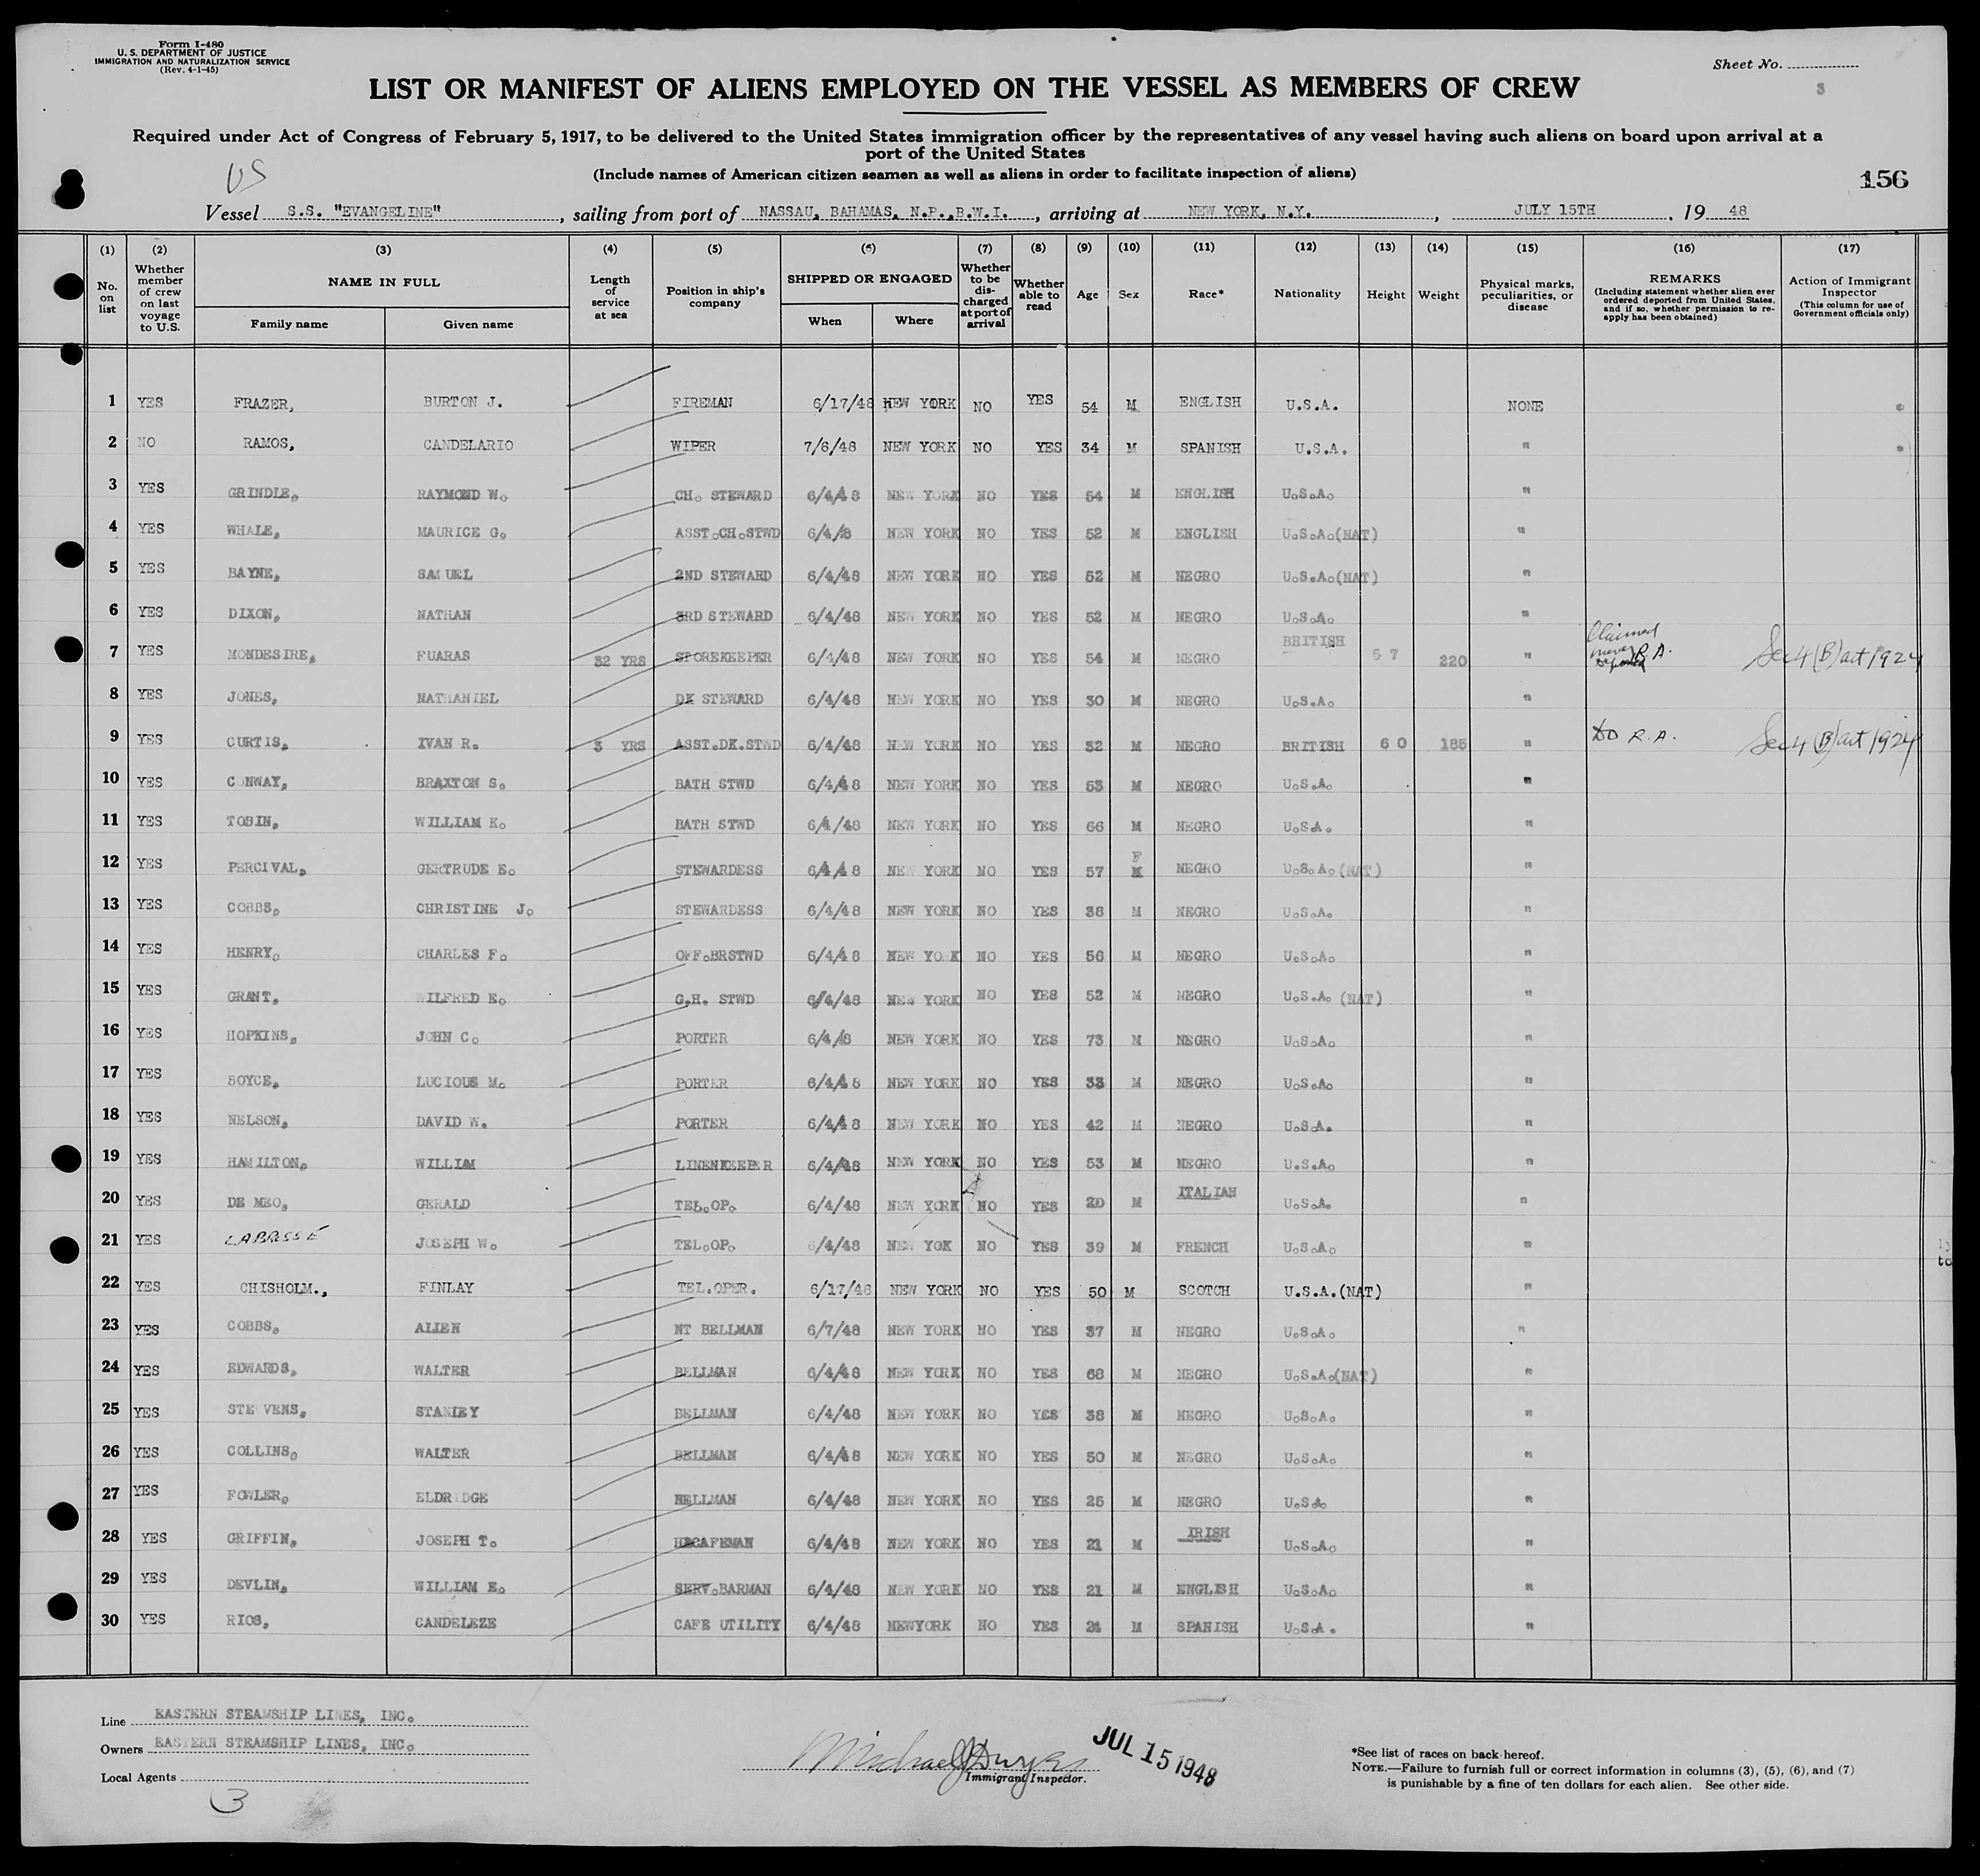 Form I-480
U. S. DEPARTMENT OF JUSTICE
IMMIGRATION AND NATURALIZATION SERVICE
(Rev. 4-1-45)
Sheet No.
3
LIST OR MANIFEST OF ALIENS EMPLOYED ON THE VESSEL AS MEMBERS OF CREW
Required under Act of Congress of February 5, 1917, to be delivered to the United States immigration officer by the representatives of any vessel having such aliens on board upon arrival at a
port of the United States
(Include names of American citizen seamen as well as aliens in order to facilitate inspection of aliens)
US
156
Vessel S.S. "EVANGELINE", sailing from port of NASSAU, BAHAMAS, N.P.,B.W.I., arriving at NEW YORK, N.Y., JULY 15TH, 19 48
(1) (2) (3) (4) (5) (6) (7) (8) (9) (10) (11) (12) (13) (14) (15) (16) (17)
No. on list
Whether member of crew on last voyage to U.S.
NAME IN FULL
Family name Given name
Length of service at sea
Position in ship's company
SHIPPED OR ENGAGED
When Where
Whether to be discharged at port of arrival
Whether able to read
Age
Sex
Race*
Nationality
Height
Weight
Physical marks, peculiarities, or disease
REMARKS
(Including statement whether alien ever ordered deported from United States, and if so, whether permission to re-apply has been obtained)
Action of Immigrant Inspector
(This column for use of Government officials only)
1 YES FRAZER, BURTON J. FIREMAN 6/17/48 NEW YORK NO YES 54 M ENGLISH U.S.A. NONE
2 NO RAMOS, CANDELARIO WIPER 7/6/48 NEW YORK NO YES 34 M SPANISH U.S.A. "
3 YES GRINDLE, RAYMOND W. CH. STEWARD 6/4/48 NEW YORK NO YES 54 M ENGLISH U.S.A. "
4 YES WHALE, MAURICE G. ASST.CH.STWD 6/4/8 NEW YORK NO YES 52 M ENGLISH U.S.A.(NAT) "
5 YES BAYNE, SAMUEL 2ND STEWARD 6/4/48 NEW YORK NO YES 52 M NEGRO U.S.A.(NAT) "
6 YES DIXON, NATHAN 3RD STEWARD 6/4/48 NEW YORK NO YES 52 M NEGRO U.S.A. "
7 YES MONDESIRE, FUARAS 32 YRS STOREKEEPER 6/4/48 NEW YORK NO YES 54 M NEGRO BRITISH 5 7 220 " Claimed never R.A. Sec 4 (B) act 1924
8 YES JONES, NATHANIEL DK STEWARD 6/4/48 NEW YORK NO YES 30 M NEGRO U.S.A. "
9 YES CURTIS, IVAN R. 3 YRS ASST.DK.STWD 6/4/48 NEW YORK NO YES 32 M NEGRO BRITISH 6 0 185 " DO R.A. Sec 4 (B) act 1924
10 YES CONWAY, BRAXTON S. BATH STWD 6/4/48 NEW YORK NO YES 53 M NEGRO U.S.A. "
11 YES TOBIN, WILLIAM K. BATH STWD 6/4/48 NEW YORK NO YES 66 M NEGRO U.S.A. "
12 YES PERCIVAL, GERTRUDE E. STEWARDESS 6/4/48 NEW YORK NO YES 57 F NEGRO U.S.A.(NAT) "
13 YES COBBS, CHRISTINE J. STEWARDESS 6/4/48 NEW YORK NO YES 38 M NEGRO U.S.A. "
14 YES HENRY, CHARLES F. OFF.BRSTWD 6/4/48 NEW YORK NO YES 56 M NEGRO U.S.A. "
15 YES GRANT, WILFRED E. G.H. STWD 6/4/48 NEW YORK NO YES 52 M NEGRO U.S.A. (NAT) "
16 YES HOPKINS, JOHN C. PORTER 6/4/8 NEW YORK NO YES 73 M NEGRO U.S.A. "
17 YES BOYCE, LUCIOUS M. PORTER 6/4/48 NEW YORK NO YES 33 M NEGRO U.S.A. "
18 YES NELSON, DAVID W. PORTER 6/4/48 NEW YORK NO YES 42 M NEGRO U.S.A. "
19 YES HAMILTON, WILLIAM LINENKEEPER 6/4/48 NEW YORK NO YES 53 M NEGRO U.S.A. "
20 YES DE MEO, GERALD TEL.OP. 6/4/48 NEW YORK NO YES 20 M ITALIAN U.S.A. "
21 YES LABRESSE JOSEPH W. TEL.OP. 6/4/48 NEW YOK NO YES 39 M FRENCH U.S.A. "
22 YES CHISHOLM., FINLAY TEL.OPER. 6/17/48 NEW YORK NO YES 50 M SCOTCH U.S.A.(NAT) "
23 YES COBBS, ALLEN NT BELLMAN 6/7/48 NEW YORK NO YES 37 M NEGRO U.S.A. "
24 YES EDWARDS, WALTER BELLMAN 6/4/48 NEW YORK NO YES 68 M NEGRO U.S.A.(NAT) "
25 YES STEVENS, STANLEY BELLMAN 6/4/48 NEW YORK NO YES 38 M NEGRO U.S.A. "
26 YES COLLINS, WALTER BELLMAN 6/4/48 NEW YORK NO YES 50 M NEGRO U.S.A. "
27 YES FOWLER, ELDRIDGE BELLMAN 6/4/48 NEW YORK NO YES 25 M NEGRO U.S.A. "
28 YES GRIFFIN, JOSEPH T. 6/4/48 NEW YORK NO YES 21 M IRISH U.S.A. "
29 YES DEVLIN, WILLIAM E. SERV.BARMAN 6/4/48 NEW YORK NO YES 21 M ENGLISH U.S.A. "
30 YES RIOS, CANDELEZE CAFE UTILITY 6/4/48 NEWYORK NO YES M SPANISH U.S.A. "
Line EASTERN STEAMSHIP LINES, INC.
Owners EASTERN STEAMSHIP LINES, INC.
Local Agents
3
Michael J Dwyer
Immigrant Inspector.
JUL 15 1948
*See list of races on back hereof.
NOTE.—Failure to furnish full or correct information in columns (3), (5), (6), and (7)
is punishable by a fine of ten dollars for each alien. See other side.